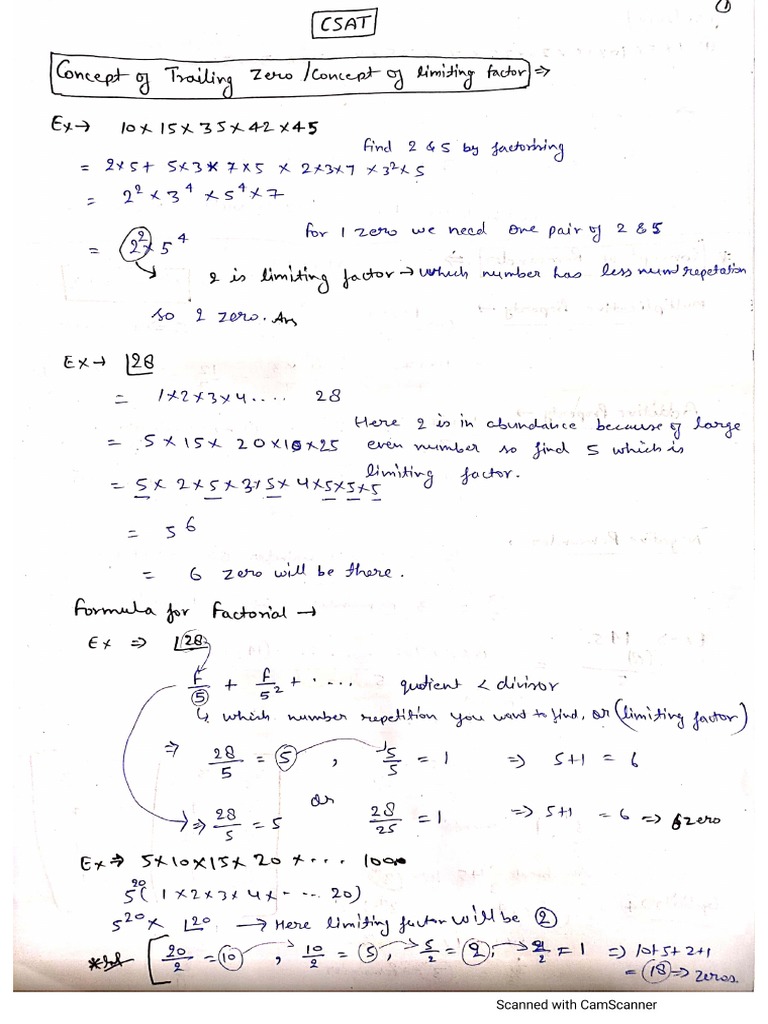 CSAT
1
Concept of Trailing Zero / Concept of limiting factor ⇒
Ex→ 10×15×35×42×45
find 2 & 5 by factorining
= 2×5+ 5×3× 7×5 × 2×3×7 × 3²×5
= 2² × 3⁴ × 5⁴ × 7
for 1 zero we need one pair of 2 & 5
= 2² × 5⁴
2 is limiting factor → which number has less num repetation
so 2 zero. Ans
Ex→ |28
= 1×2×3×4.... 28
Here 2 is in abundance because of large
= 5×15× 20×10×25 even number so find 5 which is
limiting factor.
= 5× 2×5×3×5× 4×5×5×5
= 5⁶
= 6 zero will be there.
Formula for Factorial →
Ex ⇒ |28
f/5 + f/5² + .... quotient < divisor
↳ which number repetition you want to find, or (limiting factor)
⇒ 28/5 = 5 , 5/5 = 1 ⇒ 5+1 = 6
or
⇒ 28/5 = 5 28/25 = 1 ⇒ 5+1 = 6 ⇒ 6 zero
Ex⇒ 5×10×15×20 ×.... 100
5²⁰( 1×2×3×4×.... 20)
5²⁰× |20 → Here limiting factor will be 2
20/2 = 10 , 10/2 = 5 , 5/2 = 2, 2/2 = 1 ⇒ 10+5+2+1
= 18 ⇒ zeros.
Scanned with CamScanner